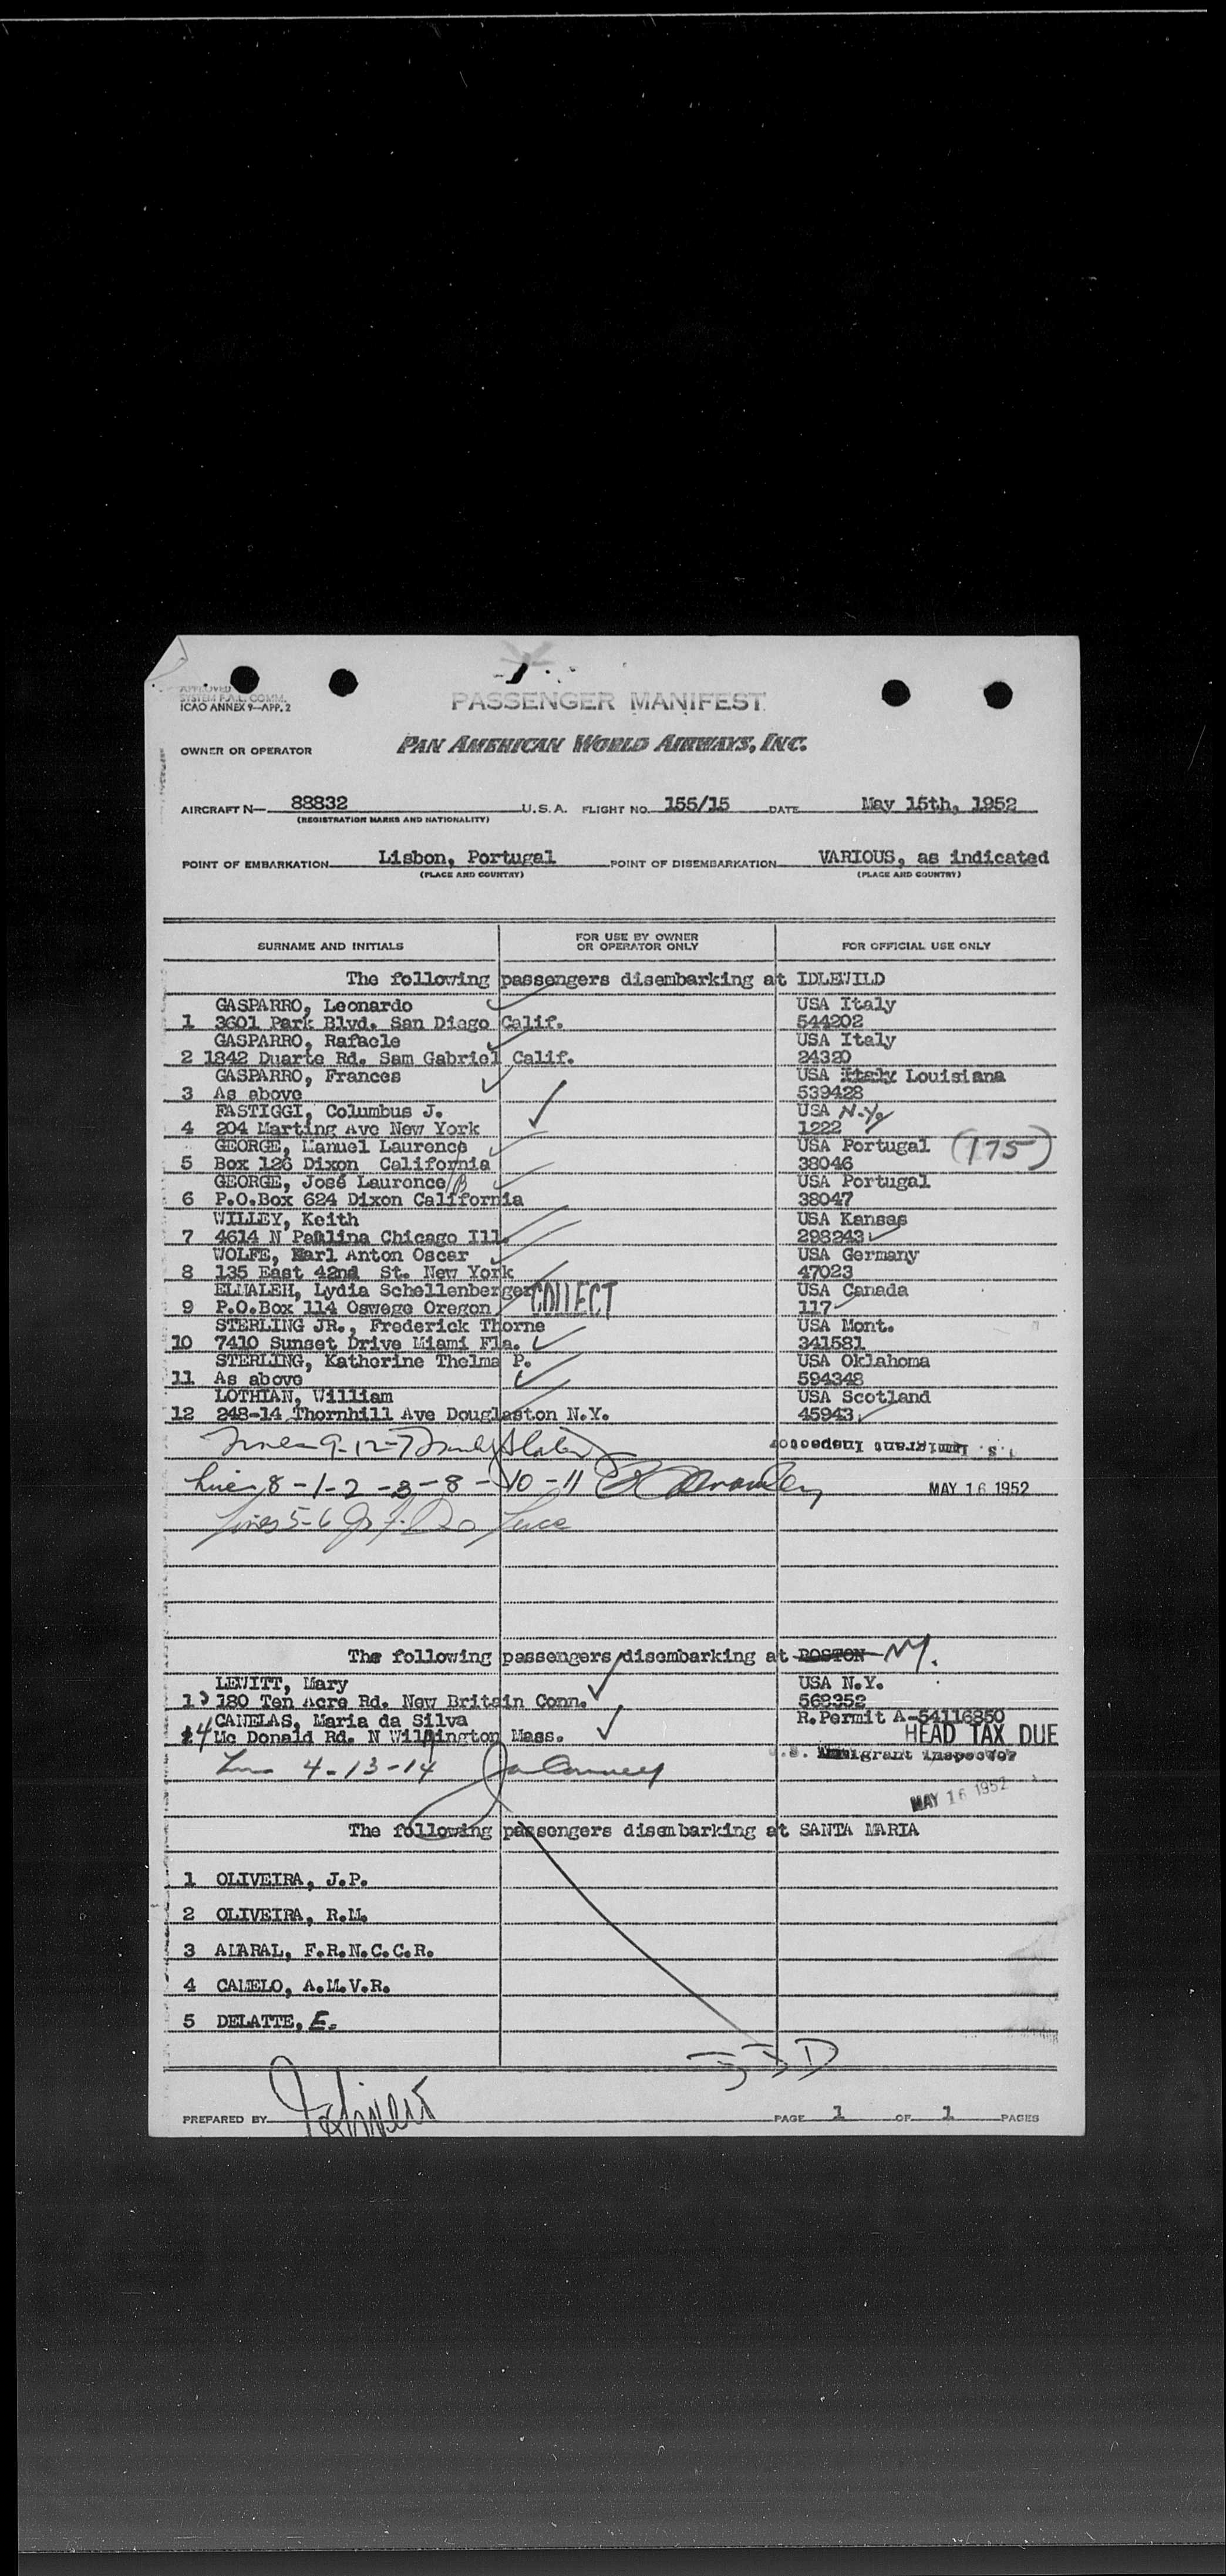 APPROVED
SYSTEM F.A.L. COMM.
ICAO ANNEX 9—APP. 2
PASSENGER MANIFEST
OWNER OR OPERATOR PAN AMERICAN WORLD AIRWAYS, INC.
AIRCRAFT N— 88832 U.S.A. FLIGHT NO. 155/15 DATE May 15th, 1952
(REGISTRATION MARKS AND NATIONALITY)
POINT OF EMBARKATION Lisbon, Portugal POINT OF DISEMBARKATION VARIOUS, as indicated
(PLACE AND COUNTRY) (PLACE AND COUNTRY)
SURNAME AND INITIALS FOR USE BY OWNER OR OPERATOR ONLY FOR OFFICIAL USE ONLY
The following passengers disembarking at IDLEWILD
GASPARRO, Leonardo USA Italy
1 3601 Park Blvd. San Diego Calif. 544202
GASPARRO, Rafaele USA Italy
2 1842 Duarte Rd. Sam Gabriel Calif. 24320
GASPARRO, Frances USA Italy Louisiana
3 As above 539428
FASTIGGI, Columbus J. USA N.Y.
4 204 Marting Ave New York 1222
GEORGE, Manuel Laurence USA Portugal (175)
5 Box 126 Dixon California 38046
GEORGE, José Laurence USA Portugal
6 P.O.Box 624 Dixon California 38047
WILLEY, Keith USA Kansas
7 4614 N Paulina Chicago Ill. 298243
WOLFE, Karl Anton Oscar USA Germany
8 135 East 42nd St. New York 47023
ELMALEH, Lydia Schellenberger COLLECT USA Canada
9 P.O.Box 114 Oswego Oregon 117
STERLING JR., Frederick Thorne USA Mont.
10 7410 Sunset Drive Miami Fla. 341581
STERLING, Katherine Thelma P. USA Oklahoma
11 As above 594348
LOTHIAN, William USA Scotland
12 248-14 Thornhill Ave Douglaston N.Y. 45943
Lines 9-12-7
U.S. Immigrant Inspector
Lines 8-1-2-3-8-10-11
MAY 16 1952
Lines 5-6
The following passengers disembarking at BOSTON NY.
LEWITT, Mary USA N.Y.
13 180 Ten Acre Rd. New Britain Conn. 568352
CANELAS, Maria da Silva R.Permit A-54116850
14 Mc Donald Rd. N Wilmington Mass. HEAD TAX DUE
U.S. Immigrant Inspector
4-13-14
MAY 16 1952
The following passengers disembarking at SANTA MARIA
1 OLIVEIRA, J.P.
2 OLIVEIRA, R.M.
3 AMARAL, F.R.N.C.C.R.
4 CAMELO, A.M.V.R.
5 DELATTE, E.
PREPARED BY PAGE 1 OF 1 PAGES